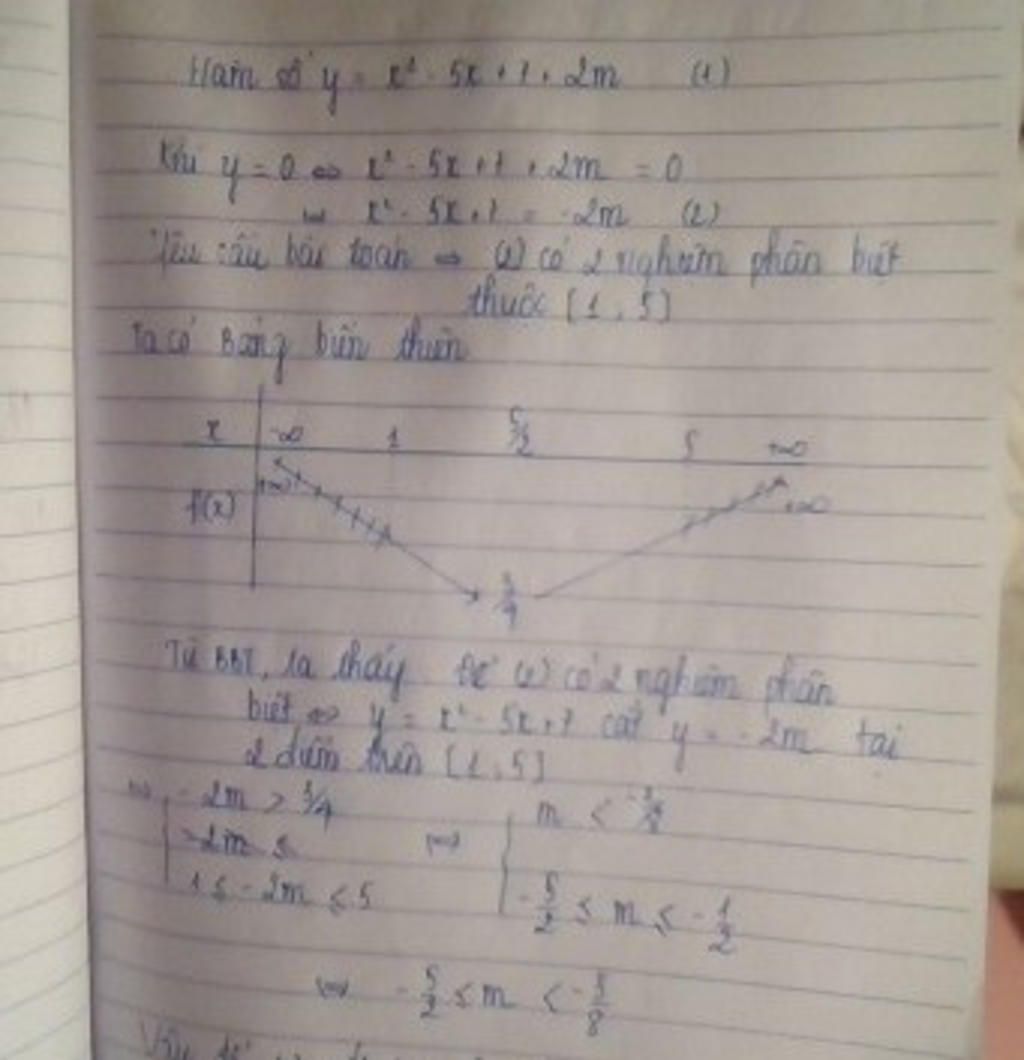 Hàm số y = x² - 5x + 7 + 2m (1)
Khi y = 0 ⇔ x² - 5x + 7 + 2m = 0
⇔ x² - 5x + 7 = -2m (2)
Yêu cầu bài toán ⇔ (2) có 2 nghiệm phân biệt
thuộc [1, 5]
Ta có Bảng biến thiên
x -∞ 1 5/2 5 +∞
f(x) +∞ 3/4 +∞
Từ BBT, ta thấy Để (2) có 2 nghiệm phân
biệt ⇔ y = x² - 5x + 7 cắt y = -2m tại
2 điểm trên [1, 5]
⇔ -2m > 3/4 ⇔ m < -3/8
-2m ≤
1 ≤ -2m ≤ 5 -5/2 ≤ m ≤ -1/2
⇔ -5/2 ≤ m < -3/8
Vậy để